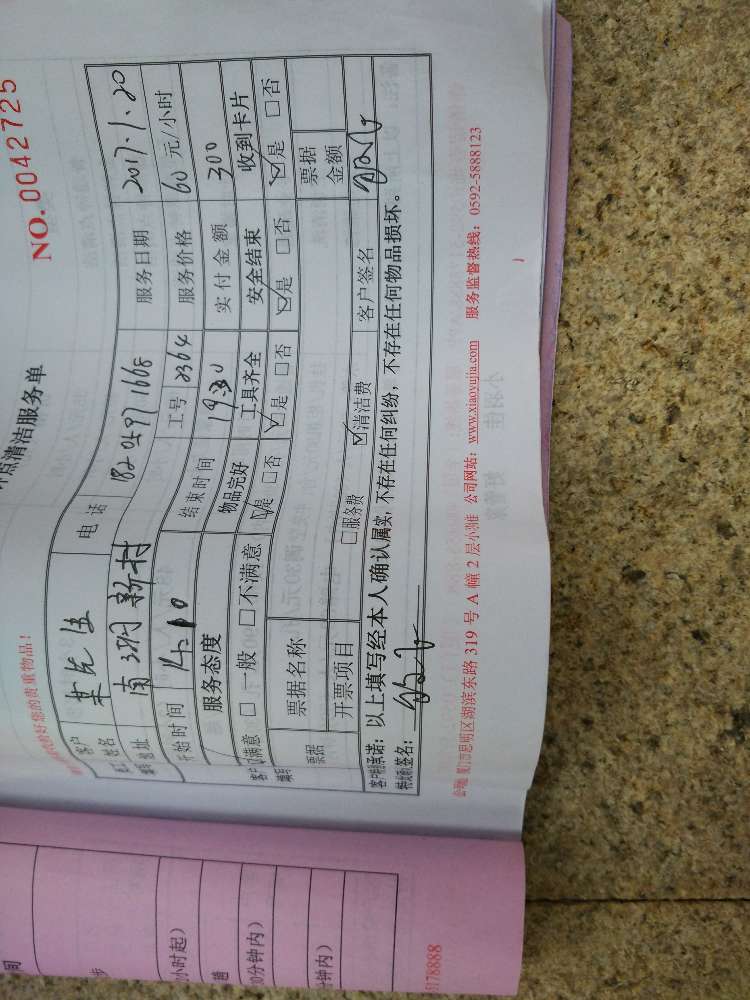 NO.0042725
点清洁服务单
好您的贵重物品！
客户姓名 电话 182 0597 1668 服务日期 2017.1.20
地址 南湖新村 工号 2364 服务价格 60元/小时
开始时间 14:10 结束时间 9:30 实付金额 300
服务态度 物品完好 工具齐全 安全结束 收到卡片
☑满意 □一般 □不满意 ☑是 □否 ☑是 □否 ☑是 □否 ☑是 □否
票据 票据名称 票据金额
开票项目 □服务费 ☑清洁费 客户签名
客户承诺：以上填写经本人确认属实，不存在任何纠纷，不存在任何物品损坏。
签名：
厦门市思明区湖滨东路319号A幢2层小渔 公司网站：www.xiaoyujia.com 服务监督热线：0592-5888123
小时起）
0分钟内）
分钟内）
5178888